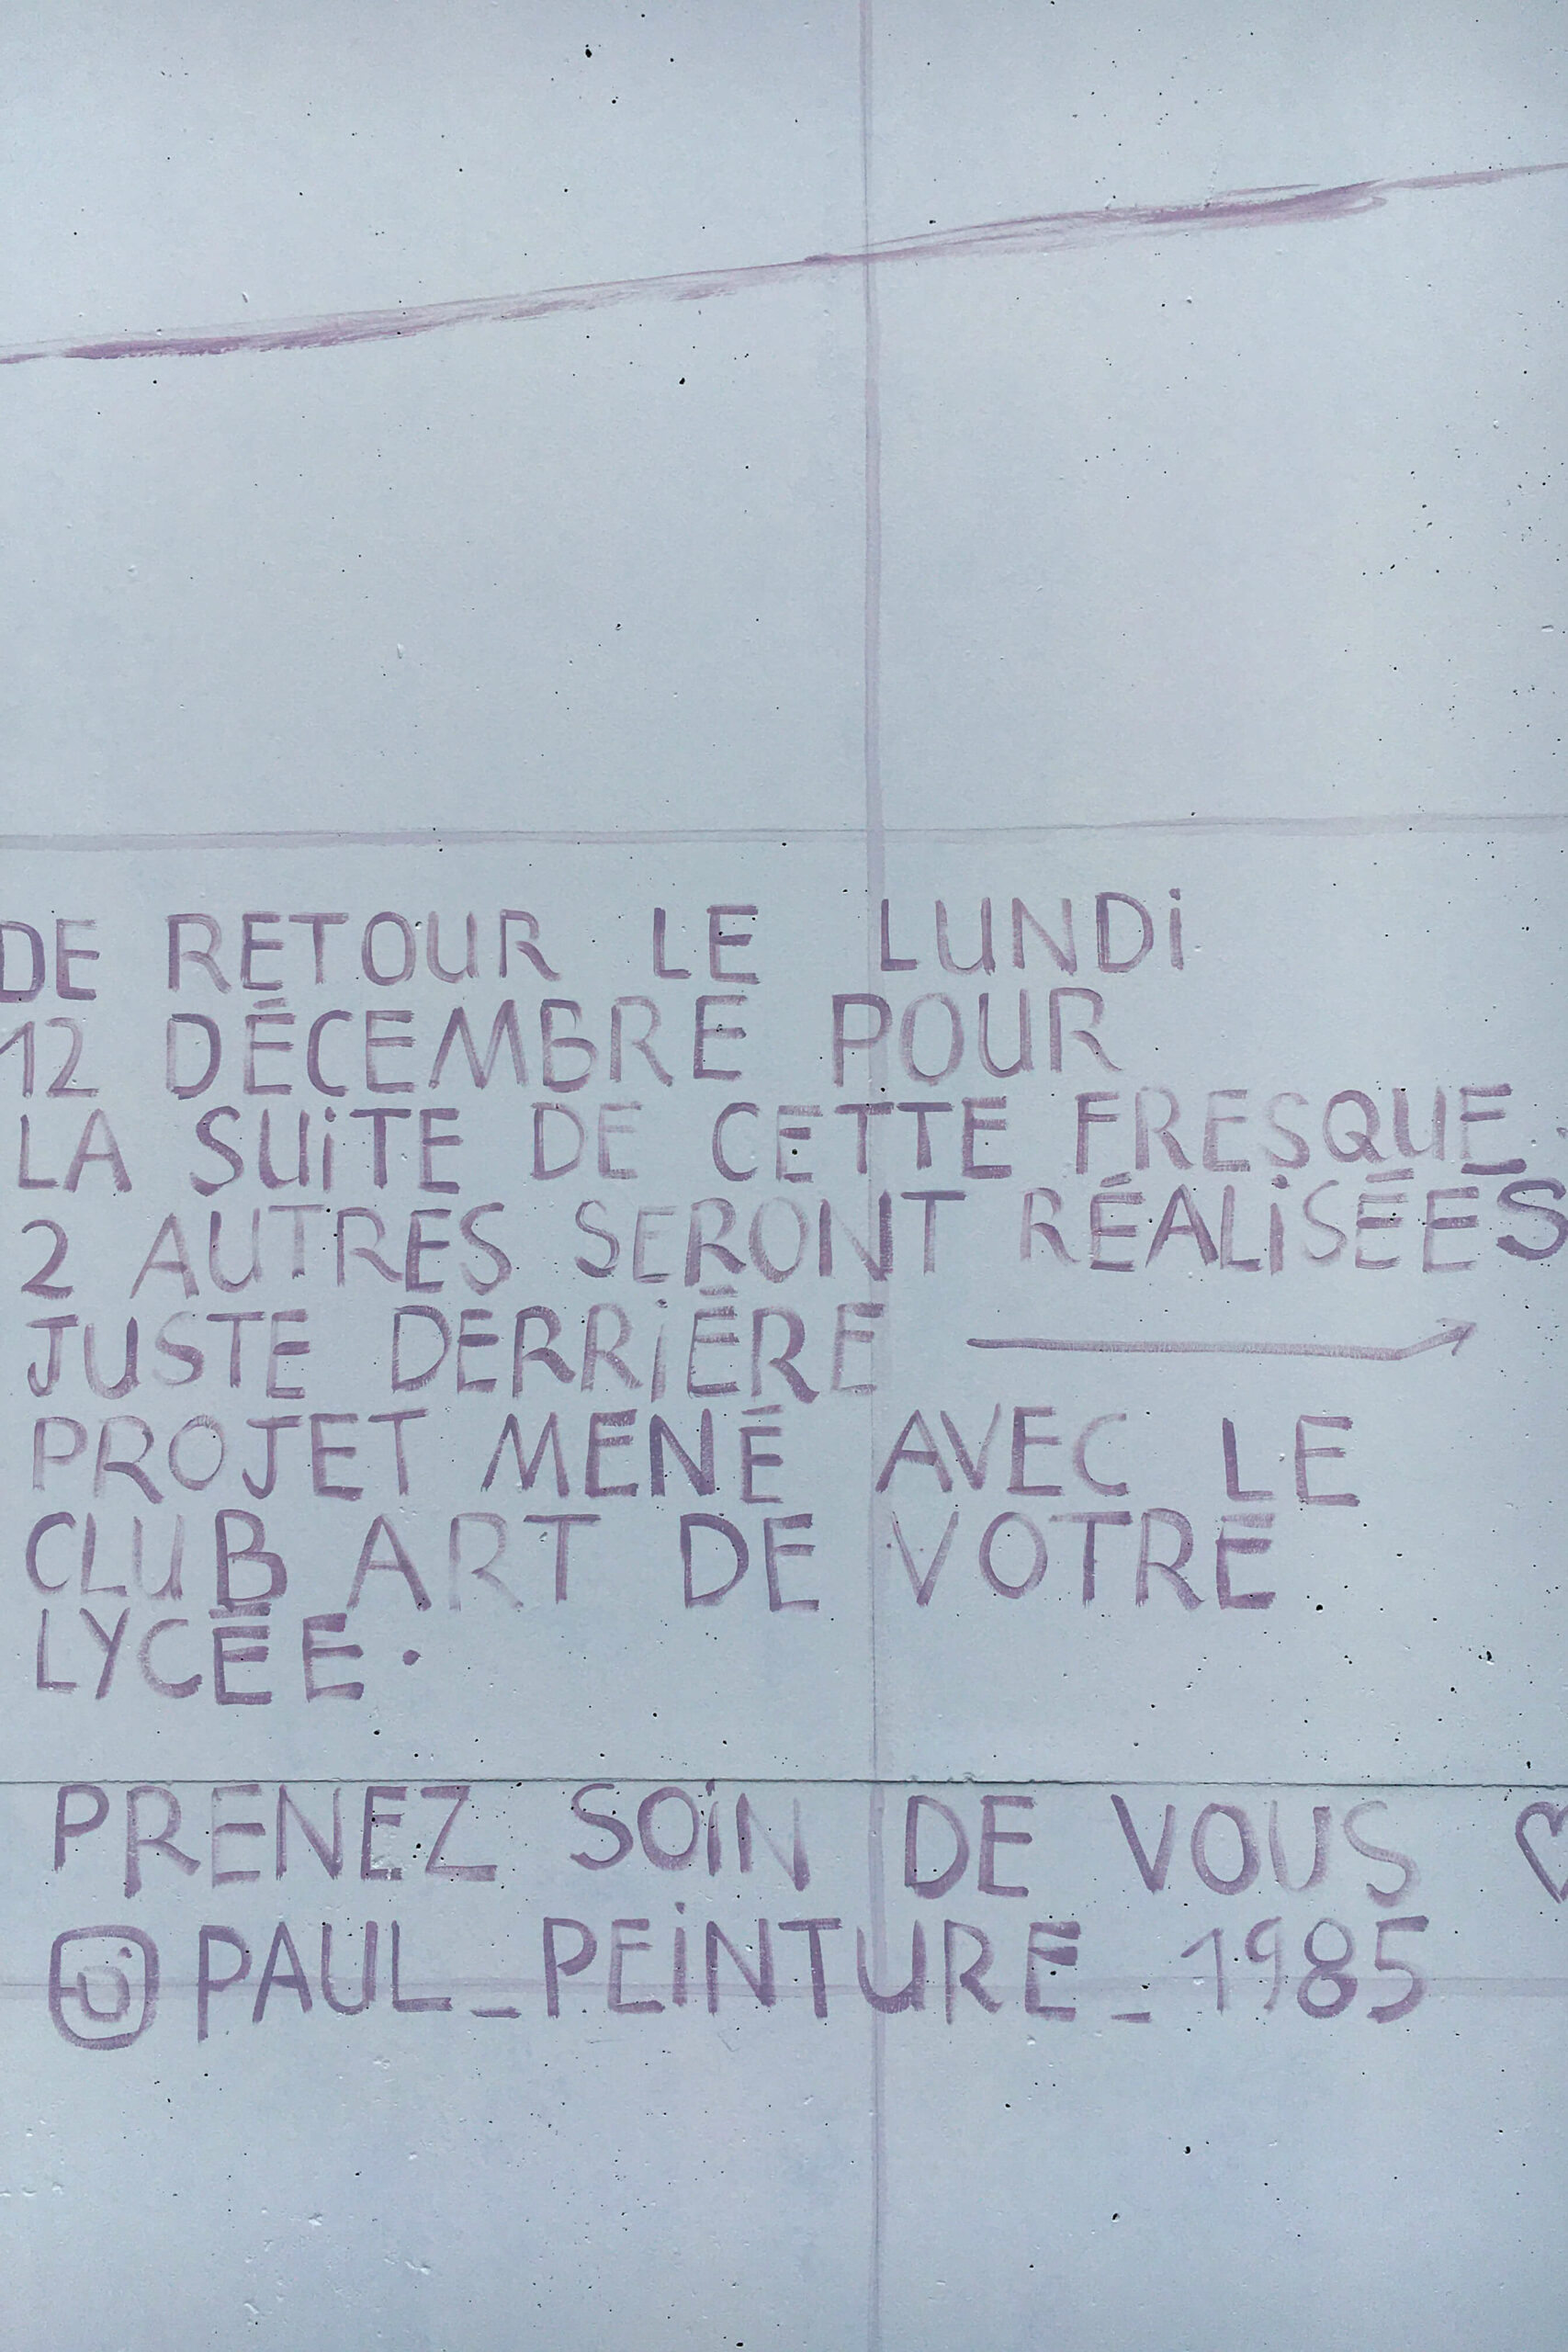 DE RETOUR LE LUNDi
12 DÉCEMBRE POUR
LA SUiTE DE CETTE FRESQUE.
2 AUTRES SERONT RÉALiSÉES
JUSTE DERRiÈRE →
PROJET MENÉ AVEC LE
CLUB ART DE VOTRE
LYCÉE.
PRENEZ SOiN DE VOUS ♡
PAUL_PEiNTURE_1985